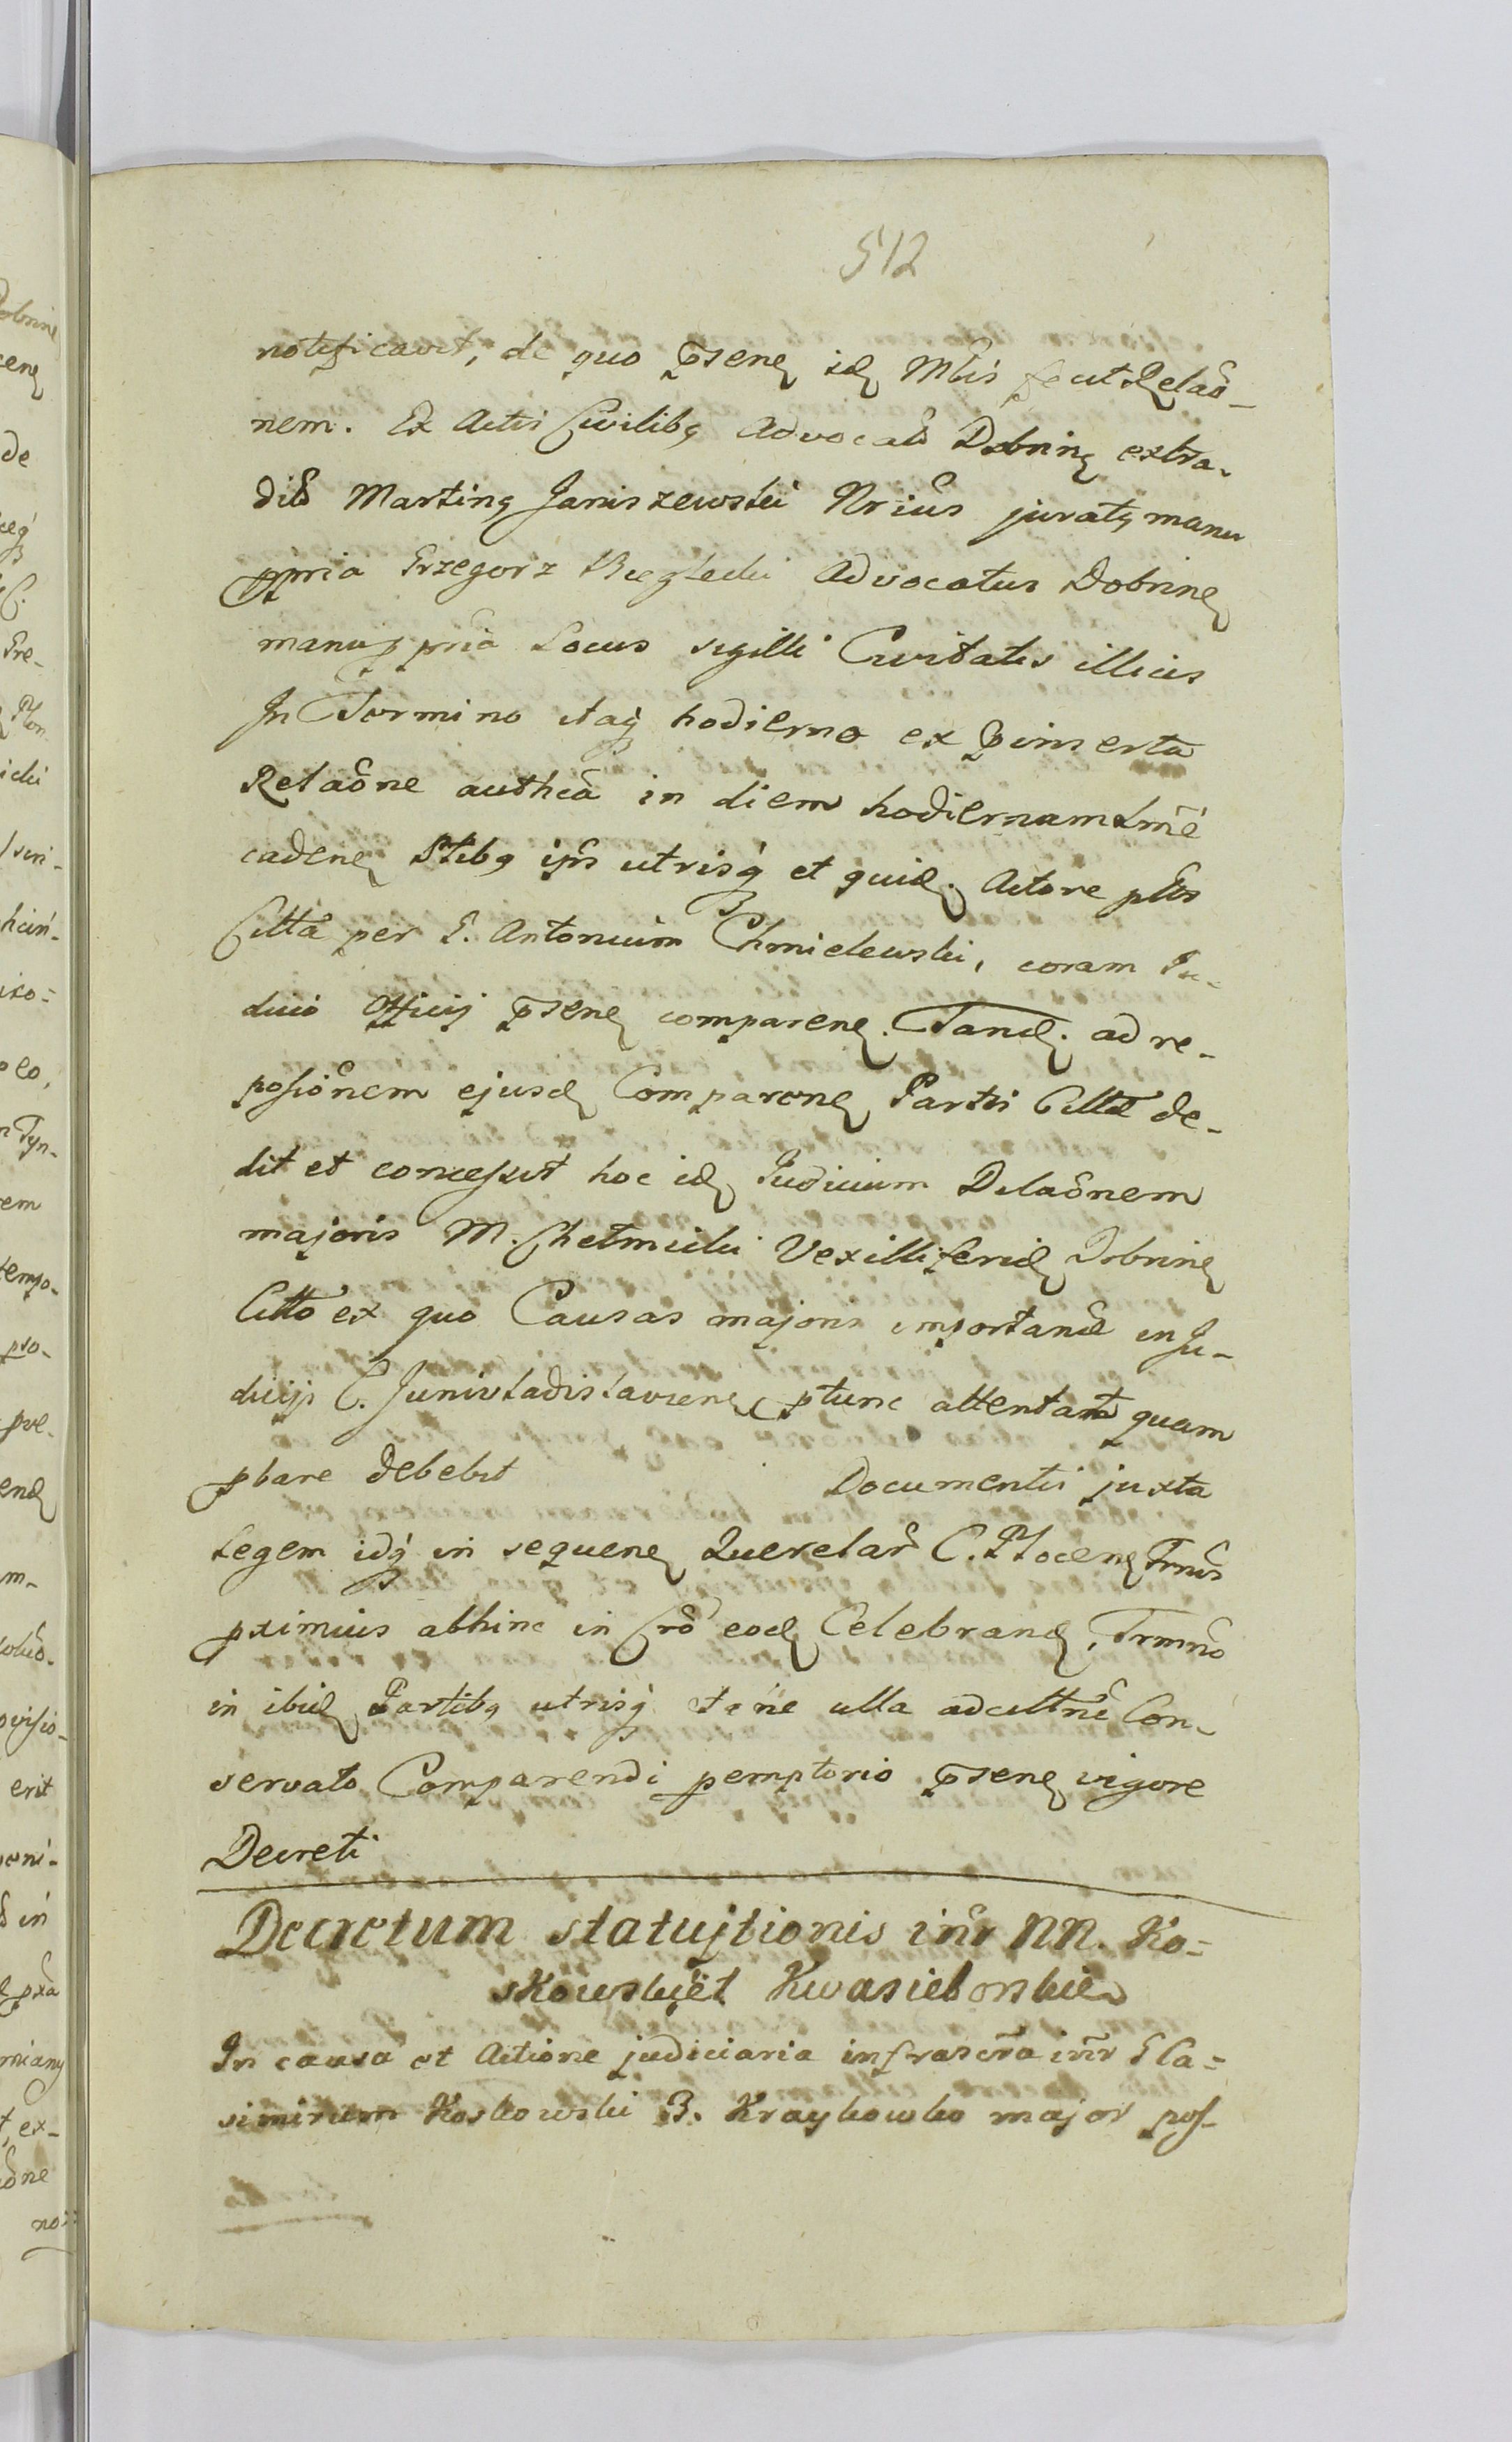 512
notificavit, de quo pseneȝ idȝ Mtlis fecit Relaõ-
nem. Ex Actis Civilibꝫ Advocalȝ Dobrinȝ extra-
dits Martinꝫ Janiszewski Nrius juratꝫ manu
ppria Grzegorz Advocatus Dobrineȝ
manu ppria Locus sigilli Civitatis illius
In Termino itaqꝫ hodierno ex pinserta
Relaõne authcã in diem hodiernam lmẽ
cadeneȝ Ptibꝫ ipñs utrisqꝫ et quidȝ. Actore ptus
Cittã per G. Antonium Chmielewski, coram Ju-
dicio Officij pseneȝ compareneȝ. Tandȝ. ad re-
posiõnem ejusdȝ Compareneȝ Partis Cittæ de-
dit et concessit hoc idȝ Judicium Dilaõnem
majoris M. Chełmicki Vexilliferidȝ Dobrineȝ
Citto ex quo Causas majoris importandȝ in Ju-
dicijs C. Juniwladislavieneȝ ptunc attentant quam
pbare debebit Documentis juxta
Legem idqꝫ in sequeneȝ Querelar̃ C. Płoceneȝ Trmis
pximius abhinc in Crõ eodȝ Celebrandȝ, Trmno
in ibidȝ Partibꝫ utrisqꝫ sine ulla adcittnẽ Con-
servato Comparendi pemptorio pseneȝ vigore
Decreti
Decretum statujtionis inr̃ NN. Ko=
skowski et Kwasieborskie
In causa et Actione judiciaria infrascrã inr̃ G Ca=
simirum Koskowski B. Kraykowko major pos-